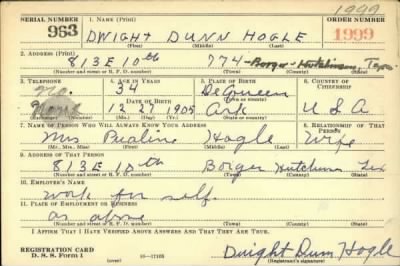 1999
SERIAL NUMBER 1. Name (Print) ORDER NUMBER
953 DWIGHT DUNN HOGLE 1999
(First) (Middle) (Last)
2. Address (Print)
813 E 10th 774- Borger - Hutchinson, Texas
(Number and street or R. F. D. number) (Town) (County) (State)
3. Telephone 4. Age in Years 5. Place of Birth 6. Country of Citizenship
no. 34 DeQueen
Date of Birth (Town or county)
None 12 27 1905 Ark U S A
(Exchange) (Number) (Mo.) (Day) (Yr.) (State or country)
7. Name of Person Who Will Always Know Your Address 8. Relationship of That Person
Mrs Pualine Hogle Wife
(Mr., Mrs., Miss) (First) (Middle) (Last)
9. Address of That Person
813 E 10th Borger Hutchinson Tex
(Number and street or R. F. D. number) (Town) (County) (State)
10. Employer's Name
work for self.
11. Place of Employment or Business
as above
(Number and street or R. F. D. number) (Town) (County) (State)
I Affirm That I Have Verified Above Answers and That They Are True.
Registration Card
D. S. S. Form 1 (over) 16—17105 Dwight Dunn Hogle
(Registrant's signature)